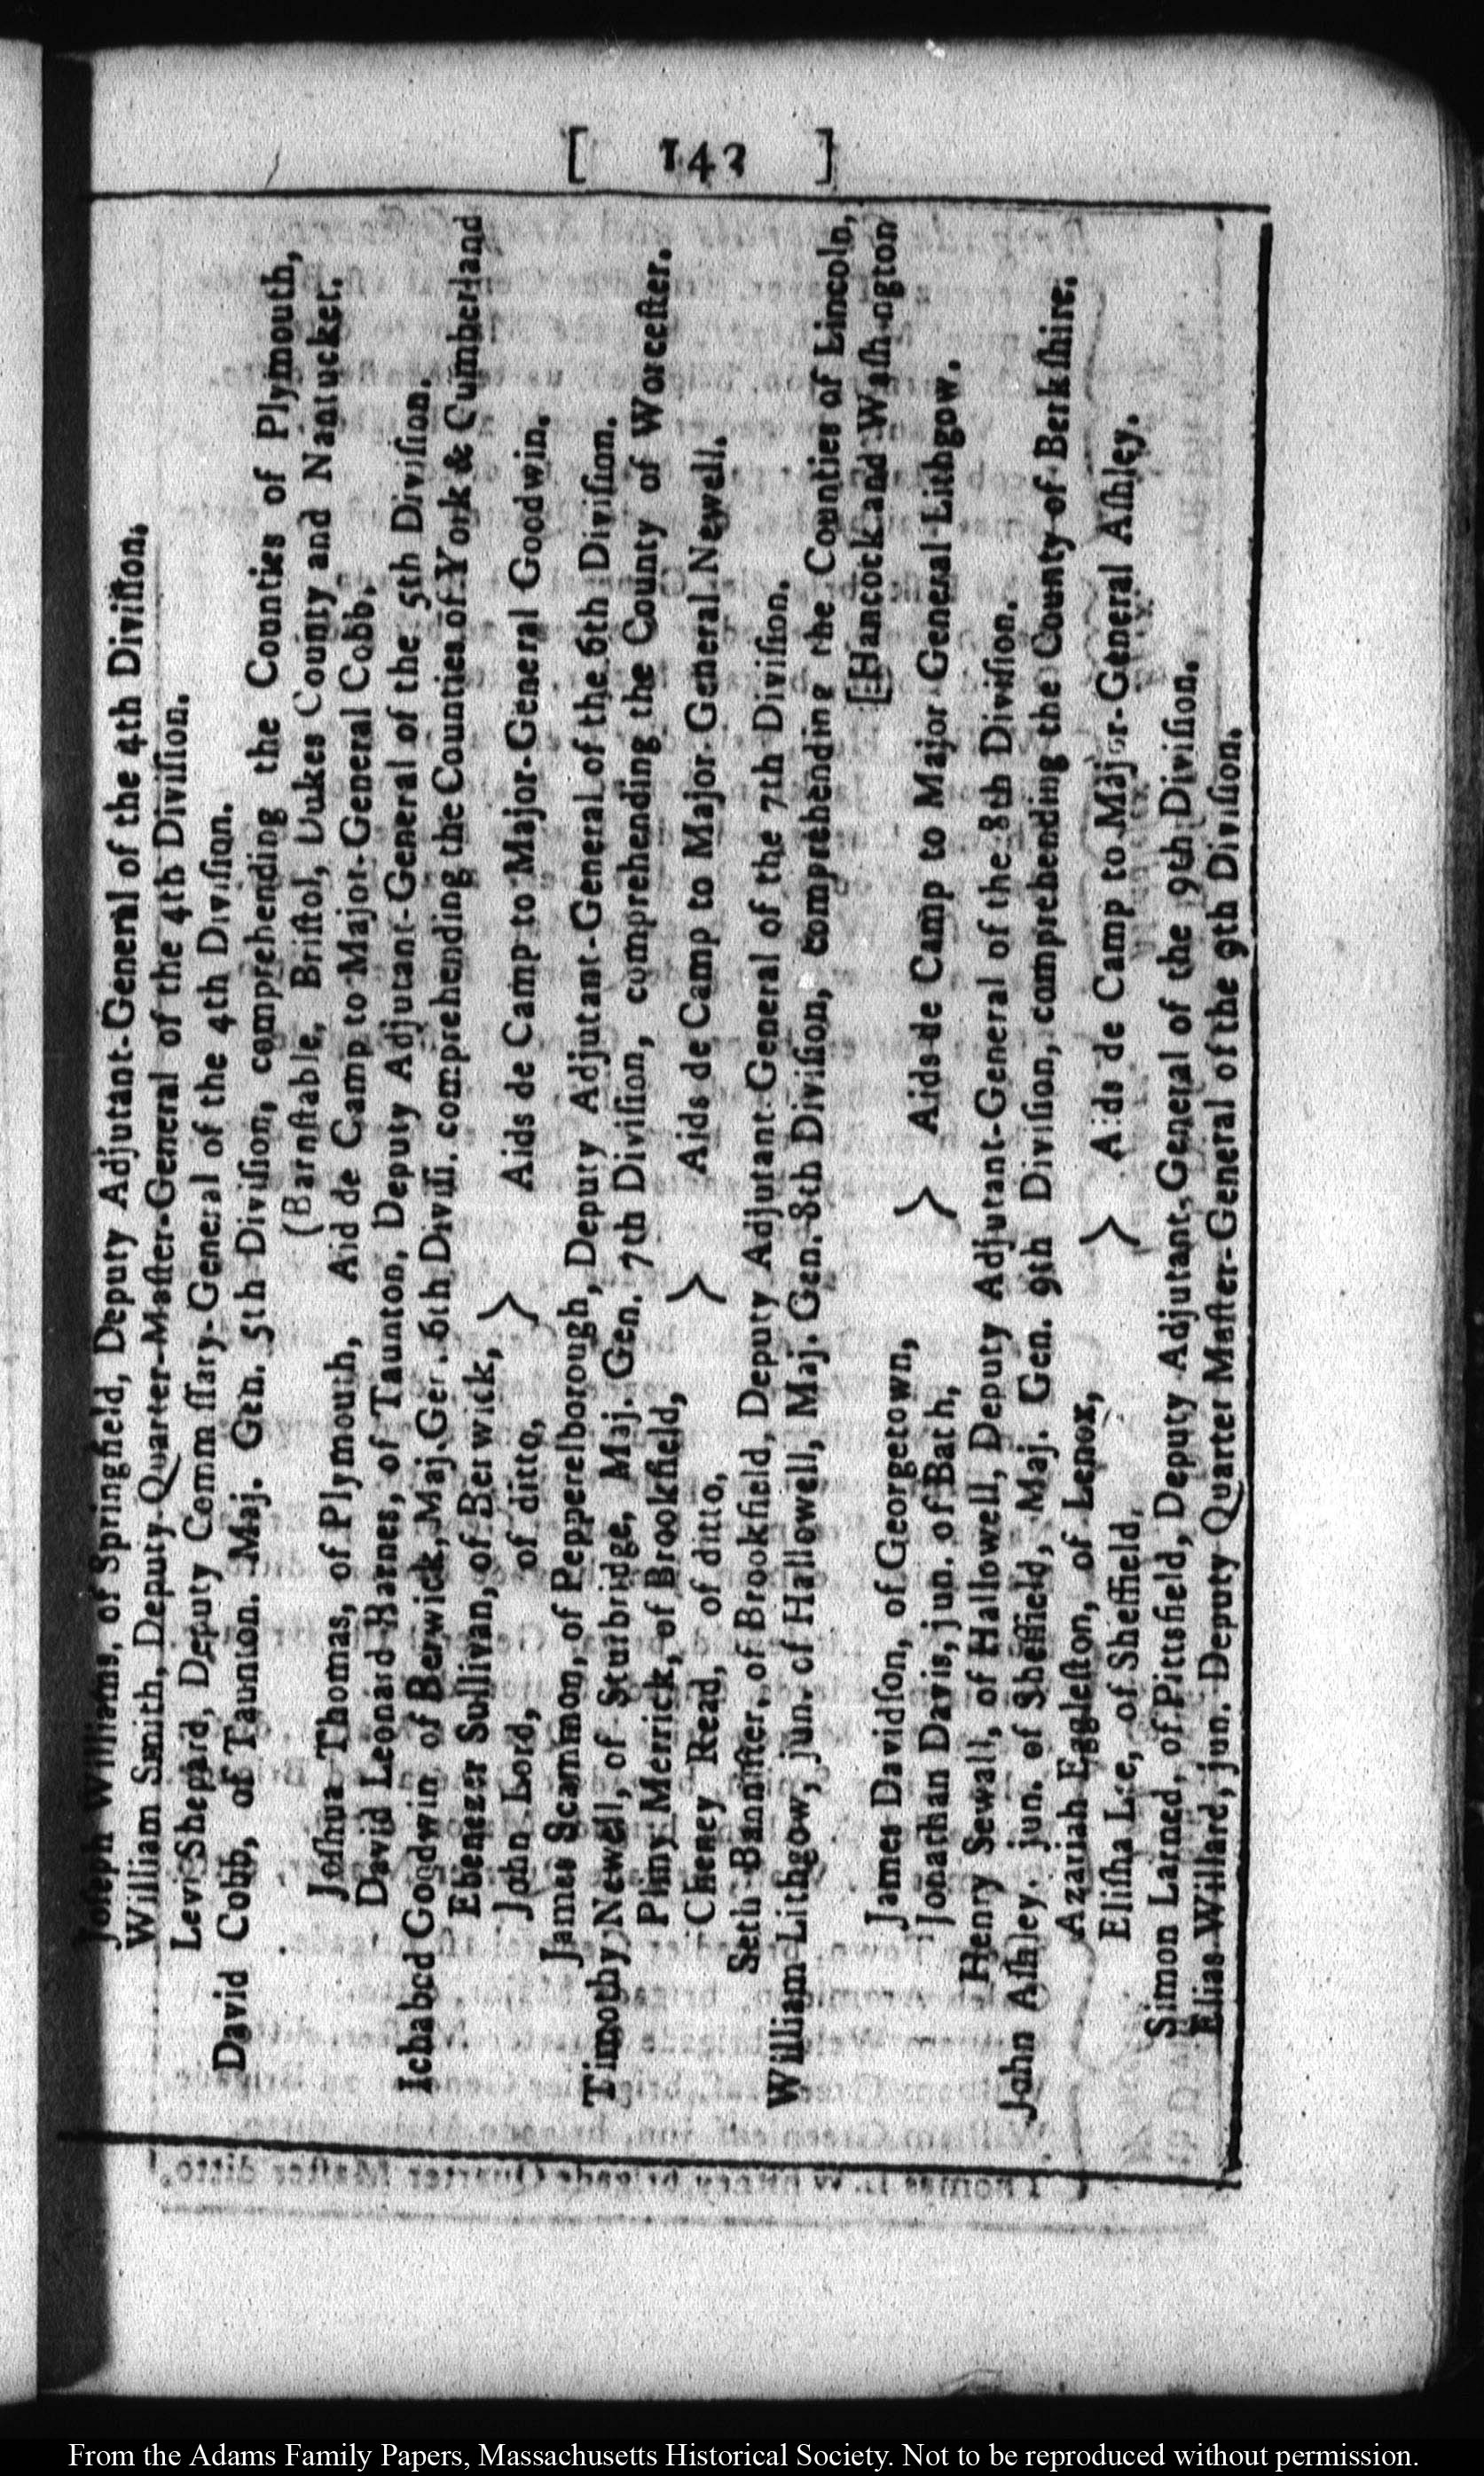 [ 142 ]
Joseph Williams, of Springfield, Deputy Adjutant-General of the 4th Diviſion.
William Smith, Deputy Quarter-Maſter-General of the 4th Diviſion.
Levi Shepard, Deputy Comm ſſary-General of the 4th Diviſion.
David Cobb, of Taunton. Maj. Gen. 5th Diviſion, comprehending the Counties of Plymouth,
(Barnſtable, Briſtol, Dukes County and Nantucket.
Joſhua Thomas, of Plymouth, Aid de Camp to Major-General Cobb,
David Leonard Barnes, of Taunton, Deputy Adjutant-General of the 5th Diviſion.
Ichabod Goodwin of Berwick, Maj. Ger. 6th Diviſi. comprehending the Counties of York & Cumberland
Ebenezer Sullivan, of Berwick,
John Lord, of ditto, } Aids de Camp to Major-General Goodwin.
James Scammon, of Pepperelborough, Deputy Adjutant-General of the 6th Diviſion.
Timothy Newell, of Sturbridge, Maj. Gen. 7th Diviſion, comprehending the County of Worceſter.
Pliny Merrick, of Brookfield,
Cheney Read, of ditto, } Aids de Camp to Major-General Newell.
Seth Banniſter, of Brookfield, Deputy Adjutant-General of the 7th Diviſion.
William Lithgow, jun. of Hallowell, Maj. Gen. 8th Diviſion, comprehending the Counties of Lincoln,
[Hancock and Waſh ngton
James Davidſon, of Georgetown,
Jonathan Davis, jun. of Bath, } Aids de Camp to Major General Lithgow.
Henry Sewall, of Hallowell, Deputy Adjutant-General of the 8th Diviſion.
John Aſhley. jun. of Sheffield, Maj. Gen. 9th Diviſion, comprehending the County of Berkſhire.
Azariah Eggleſton, of Lenox,
Eliſha Lee, of Sheffield, } Aids de Camp to Major-General Aſhley.
Simon Larned, of Pittsfield, Deputy Adjutant-General of the 9th Diviſion.
Elias Willard, jun. Deputy Quarter Maſter-General of the 9th Diviſion.
From the Adams Family Papers, Massachusetts Historical Society. Not to be reproduced without permission.